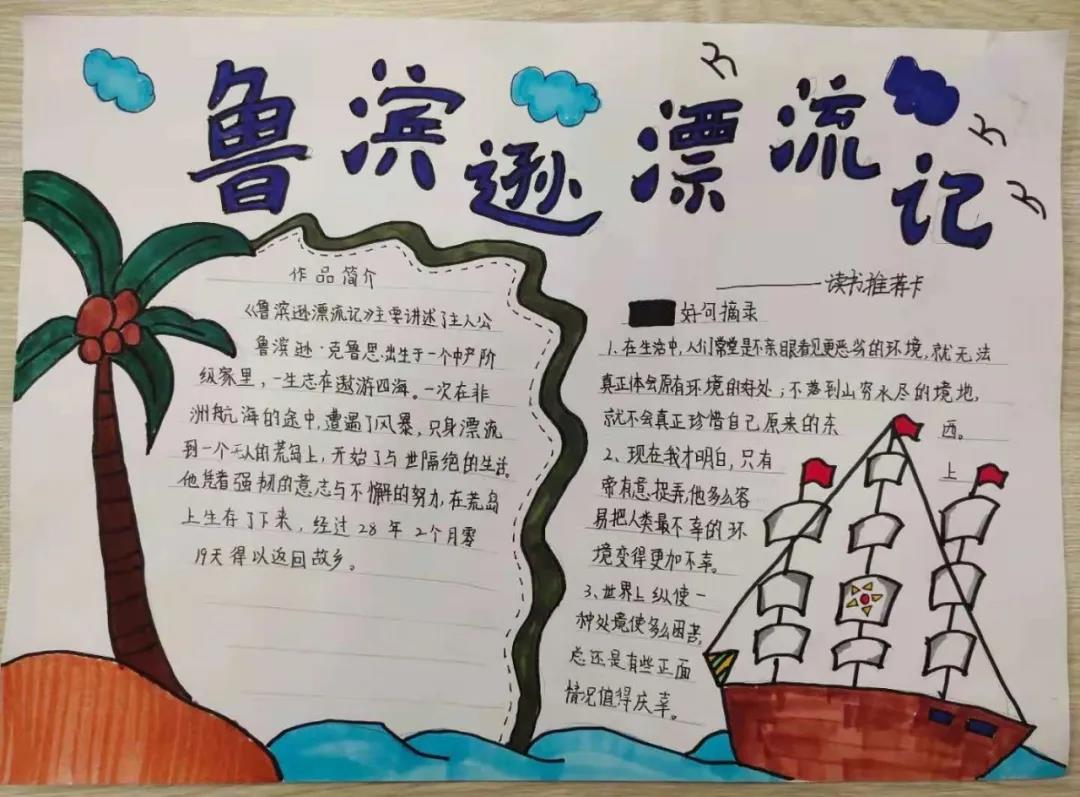 鲁滨逊漂流记
——读书推荐卡
作品简介
《鲁滨逊漂流记》主要讲述了主人公
鲁滨逊·克鲁思出生于一个中产阶
级家里，一生志在遨游四海。一次在非
洲航海的途中，遭遇了风暴，只身漂流
到一个无人的荒岛上，开始了与世隔绝的生活。
他凭着强韧的意志与不懈的努力，在荒岛
上生存了下来，经过28年2个月零
19天得以返回故乡。
好句摘录
1、在生活中，人们常堂是不亲眼看见更恶劣的环境，就无法
真正体会原有环境的好处；不落到山穷水尽的境地，
就不会真正珍惜自己原来的东西。
2、现在我才明白，只有上
帝有意捉弄，他多么容
易把人类最不幸的环
境变得更加不幸。
3、世界上纵使一
种处境使多么困苦，
总还是有些正面
情况值得庆幸。